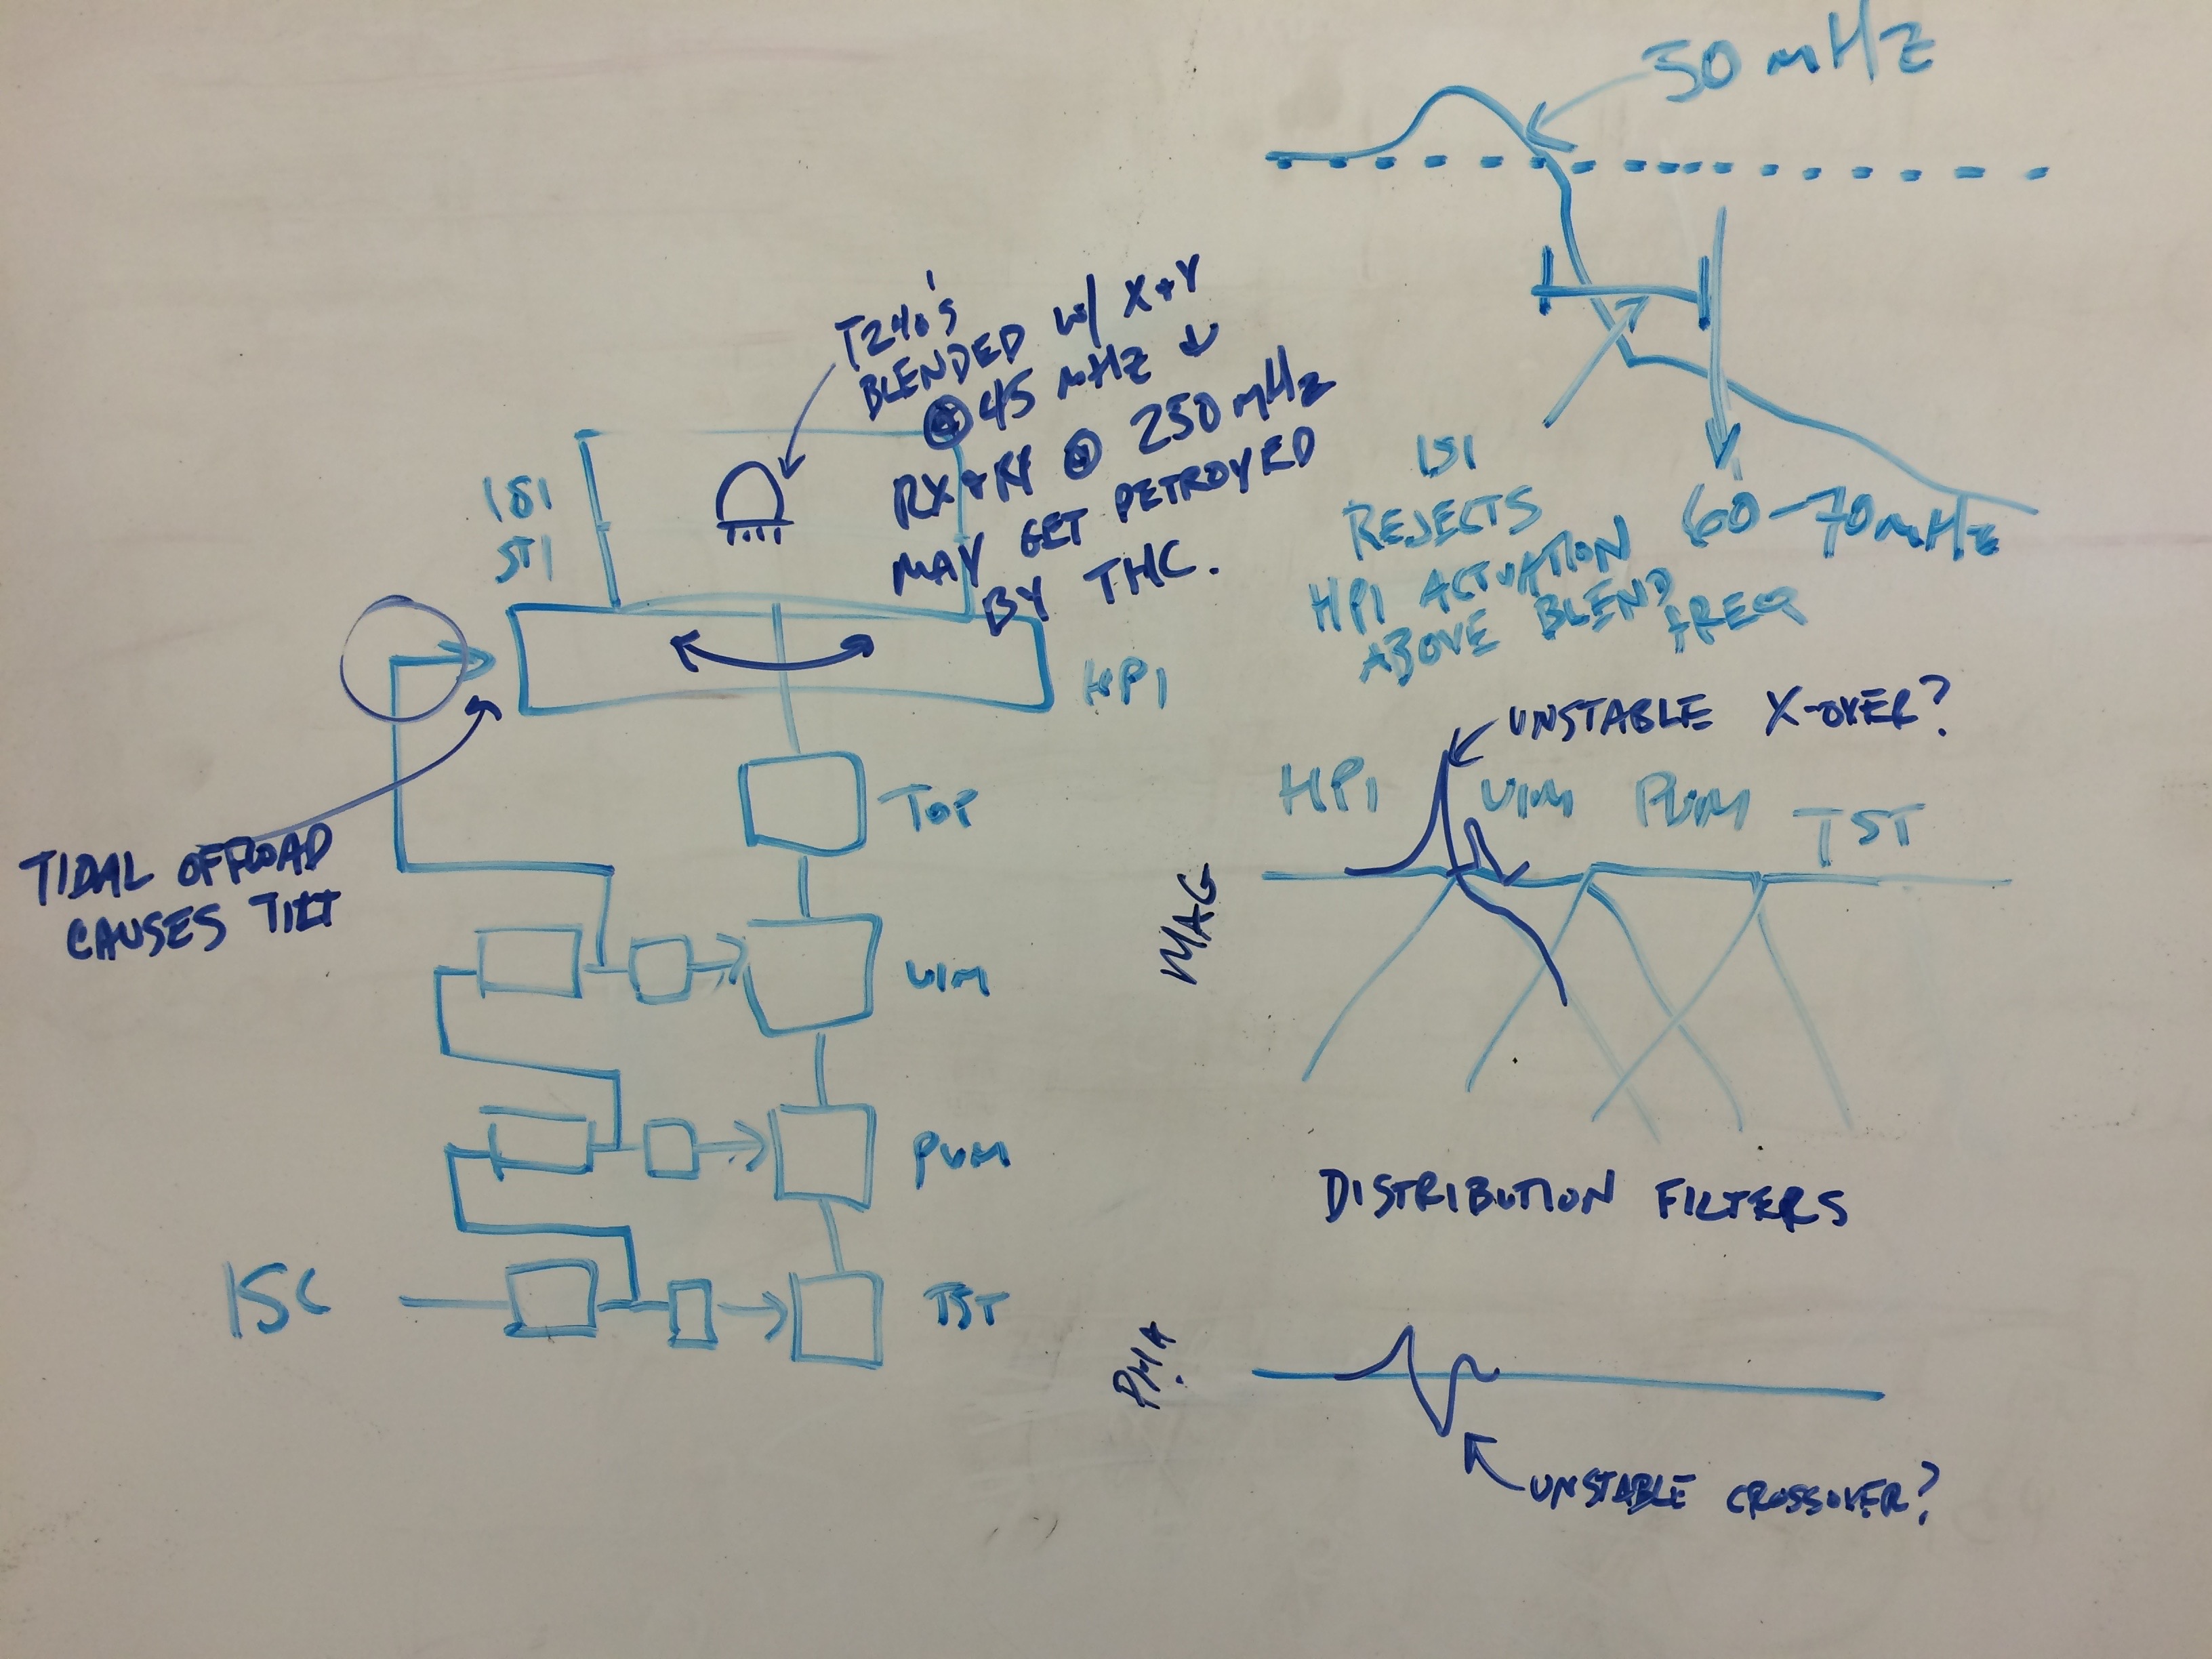 50 mHz
T240's
BLENDED w/ X+Y
@ 45 mHz ↓
RX+RY @ 250 mHz
MAY GET DETROYED
BY THC.
ISI
ST1
HPI
TIDAL OFFLOAD
CAUSES TILT
TOP
UIM
PUM
ISC
TST
ISI
REJECTS
HPI ACTUATION
ABOVE BLEND
FREQ
60-70mHz
UNSTABLE X-OVER?
HPI
UIM
PUM
TST
MAG
DISTRIBUTION FILTERS
PHA.
UNSTABLE CROSSOVER?